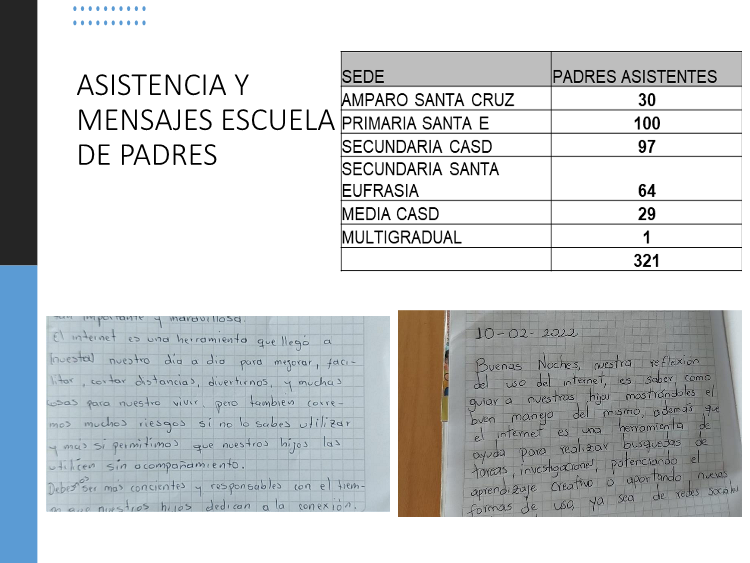 ASISTENCIA Y
MENSAJES ESCUELA
DE PADRES
SEDE PADRES ASISTENTES
AMPARO SANTA CRUZ 30
PRIMARIA SANTA E 100
SECUNDARIA CASD 97
SECUNDARIA SANTA
EUFRASIA 64
MEDIA CASD 29
MULTIGRADUAL 1
321
importante y maravillosa.
El internet es una herramienta que llegó a
nuestro día a dia para mejorar, faci-
litar, cortar distancias, divertirnos, y muchas
cosas para nuestro vivir, pero tambien corre-
mos muchos riesgos si no lo sabes utilizar
y mas si permitimos que nuestros hijos las
utilicen sin acompañamiento.
Debemos ser mas concientes y responsables con el tiem-
que nuestros hijos dedican a la conexión.
10-02-2022
Buenas Noches, nuestra reflexión
del uso del internet, es saber como
guiar a nuestros hijos mostrándoles el
buen manejo del mismo, además que
el internet es una herramienta de
ayuda para realizar busquedas de
tareas, investigaciones, potenciando el
aprendizaje creativo o aportando nuevas
formas de uso, ya sea de redes sociales